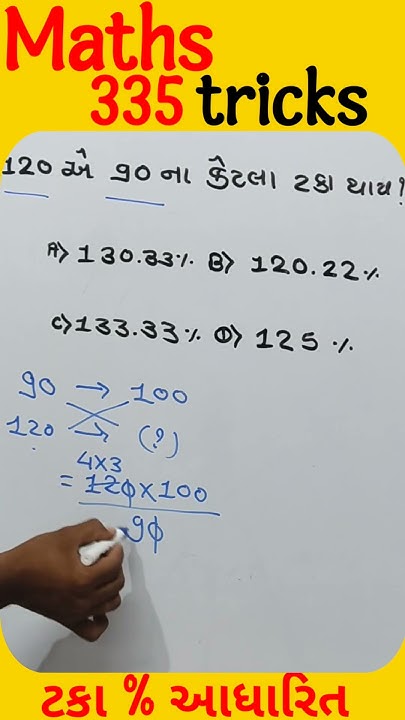 Maths
335 tricks
120 એ 90 ના કેટલા ટકા થાય ?
A> 130.33% B> 120.22%
C> 133.33% D> 125 %
90 → 100
120 → (?)
4×3
= 120×100
90
ટકા % આધારિત